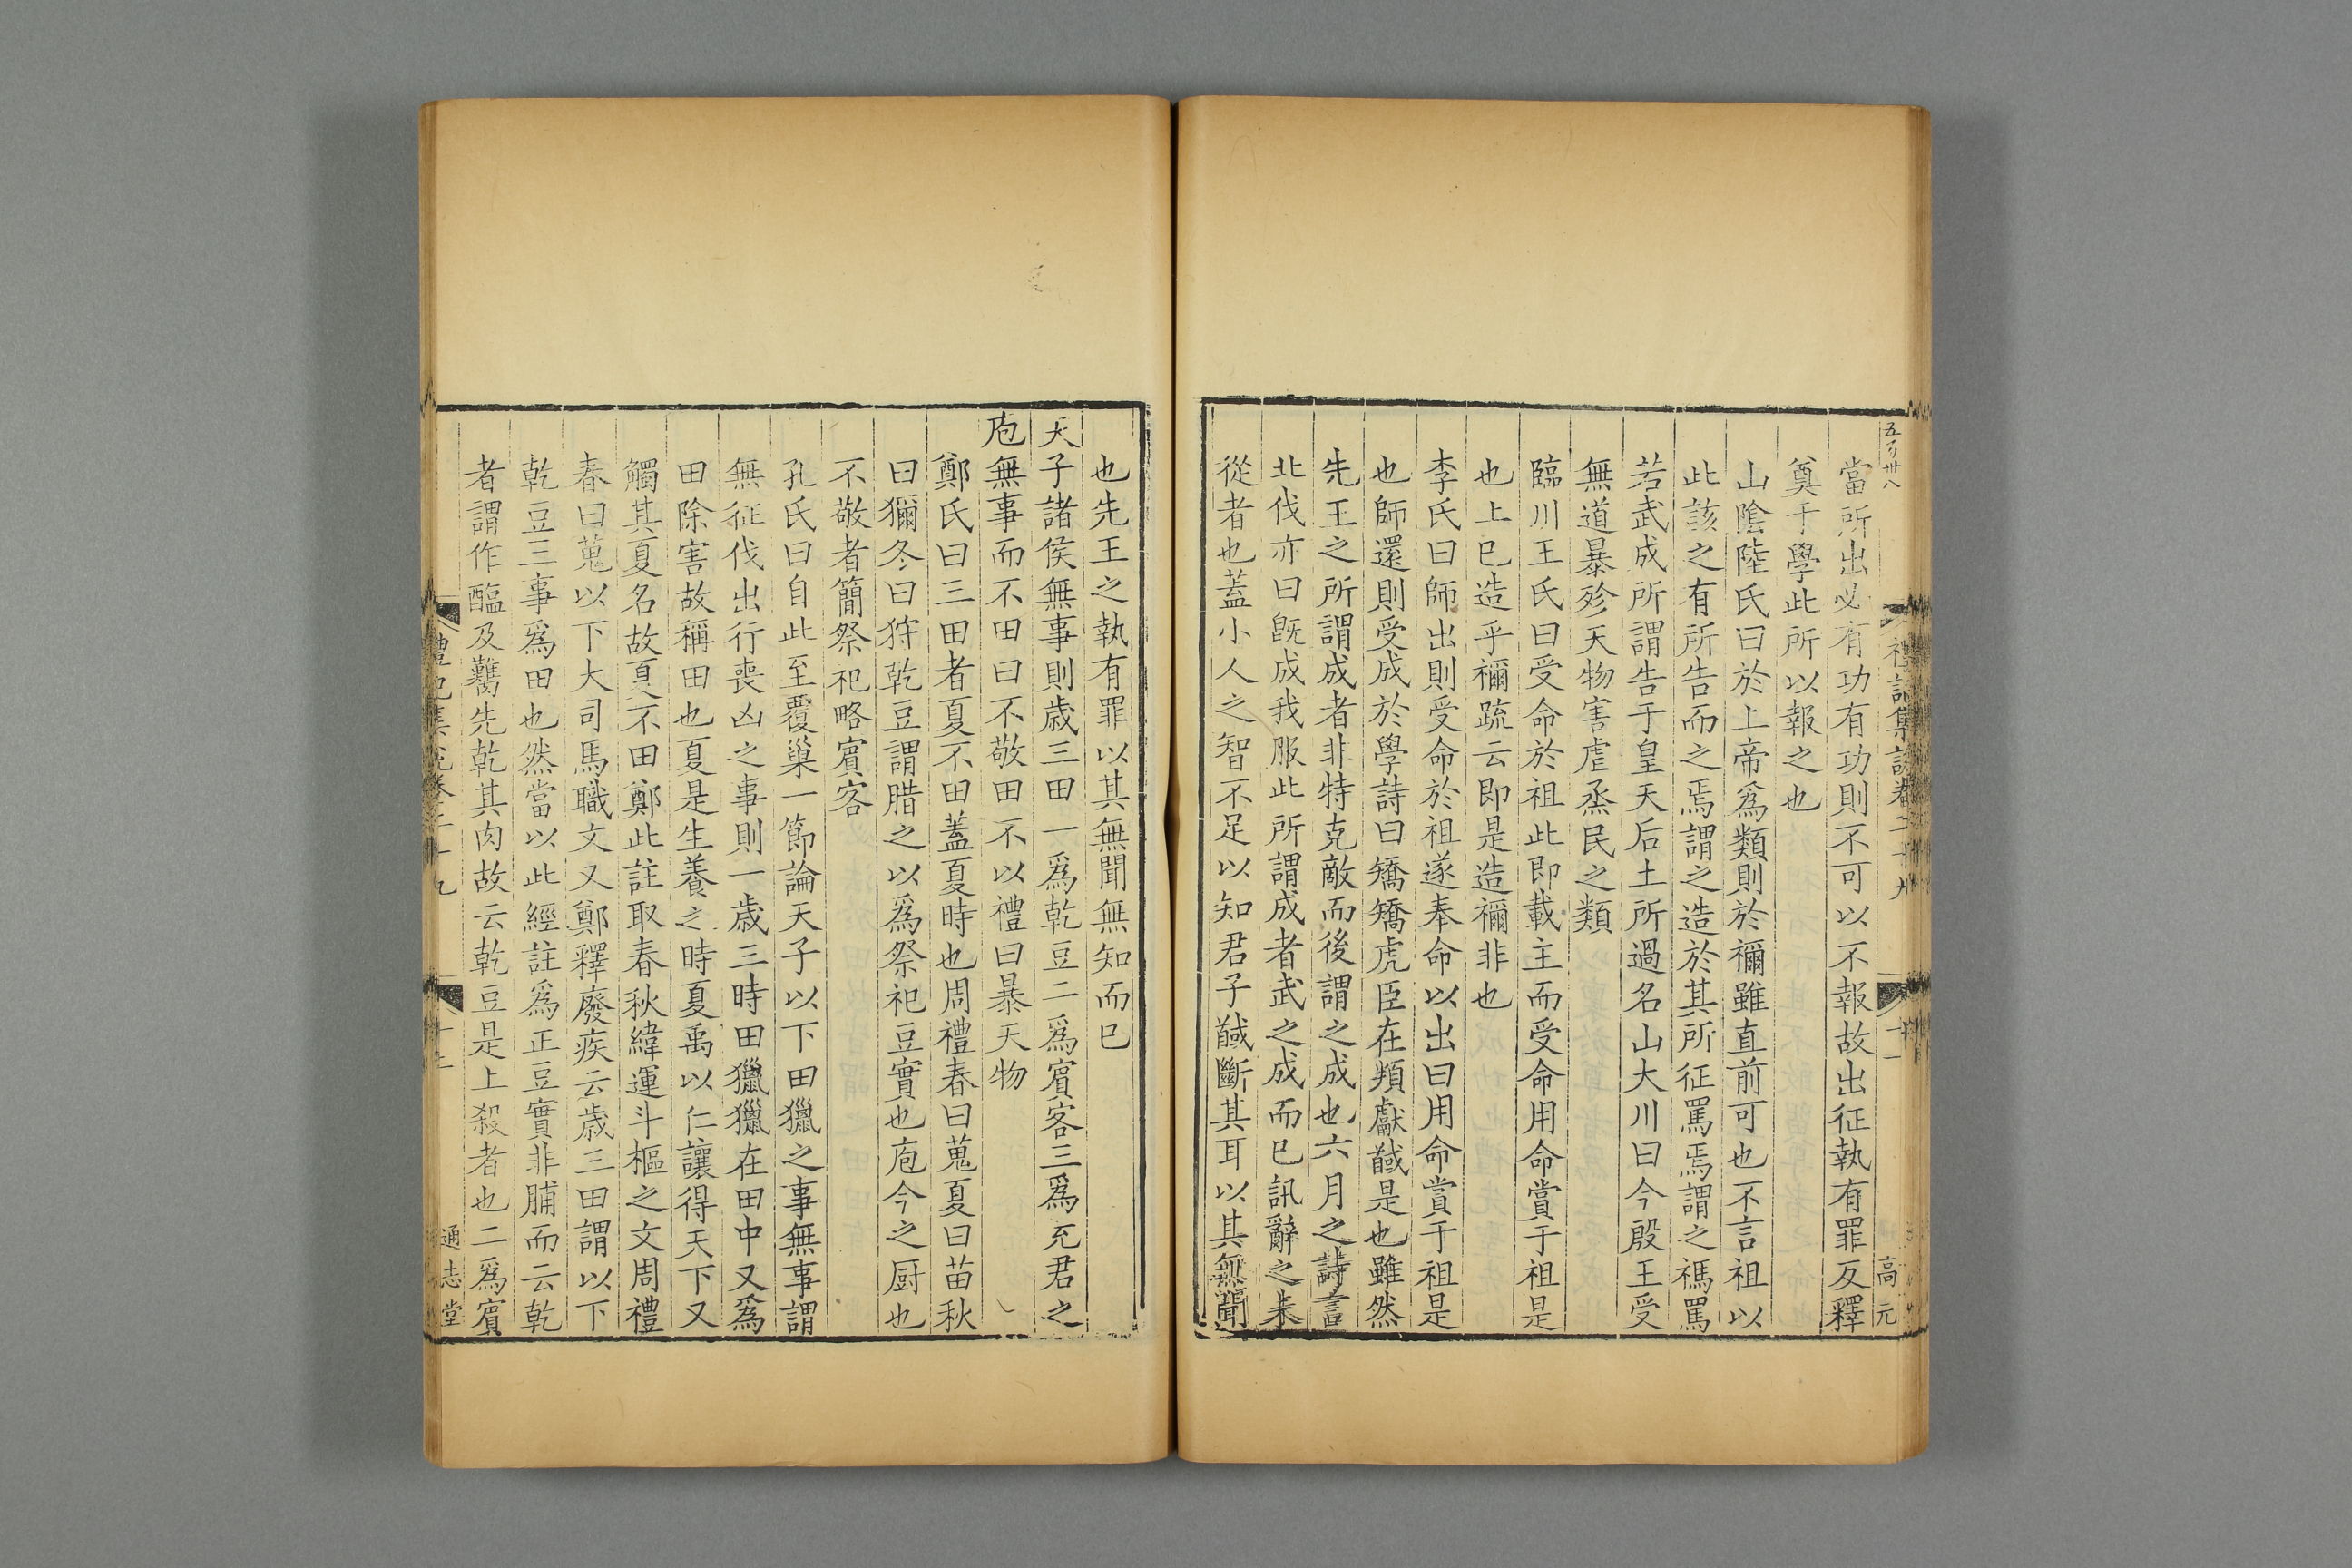 當所出必有功有功則不可以不報故出征執有罪反釋
奠于學此所以報之也
山陰陸氏曰於上帝爲類則於禰雖直前可也不言祖以
此該之有所告而之焉謂之造於其所征罵焉謂之禡罵
若武成所謂告于皇天后土所過名山大川曰今殷王受
無道暴殄天物害虐烝民之類
臨川王氏曰受命於祖此即載主而受命用命賞于祖是
也上巳造乎禰疏云即是造禰非也
李氏曰師出則受命於祖遂奉命以出曰用命賞于祖是
也師還則受成於學詩曰矯矯虎臣在頖獻馘是也雖然
先王之所謂成者非特克敵而後謂之成也六月之詩言
北伐亦曰旣成我服此所謂成者武之成而巳訊辭之未
從者也蓋小人之智不足以知君子馘斷其耳以其無聞
也先王之執有罪以其無聞無知而巳
天子諸侯無事則歳三田一爲乾豆二爲賓客三爲充君之
庖無事而不田曰不敬田不以禮曰暴天物
鄭氏曰三田者夏不田蓋夏時也周禮春曰蒐夏曰苗秋
曰獮冬曰狩乾豆謂腊之以爲祭祀豆實也庖今之厨也
不敬者簡祭祀略賓客
孔氏曰自此至覆巢一節論天子以下田獵之事無事謂
無征伐出行喪凶之事則一歳三時田獵獵在田中又爲
田除害故稱田也夏是生養之時夏禹以仁讓得天下又
觸其夏名故夏不田鄭此註取春秋緯運斗樞之文周禮
春曰蒐以下大司馬職文又鄭釋廢疾云歳三田謂以下
乾豆三事爲田也然當以此經註爲正豆實非脯而云乾
者謂作醢及臡先乾其肉故云乾豆是上殺者也二爲賓
禮記集說卷二十九
高元
通志堂